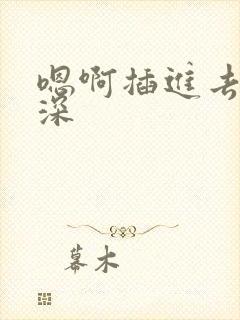 嗯啊插进去
深
幕木